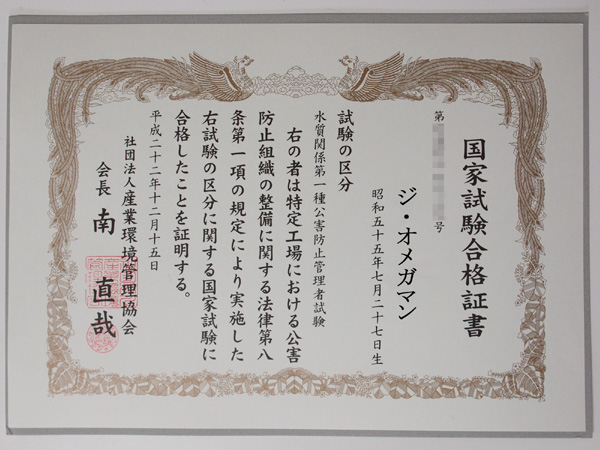 国家試験合格証書
第
号
ジ・オメガマン
昭和五十五年七月二十七日生
試験の区分
水質関係第一種公害防止管理者試験
右の者は特定工場における公害
防止組織の整備に関する法律第八
条第一項の規定により実施した
右試験の区分に関する国家試験に
合格したことを証明する。
平成二十二年十二月十五日
社団法人産業環境管理協会
会長 南 直哉